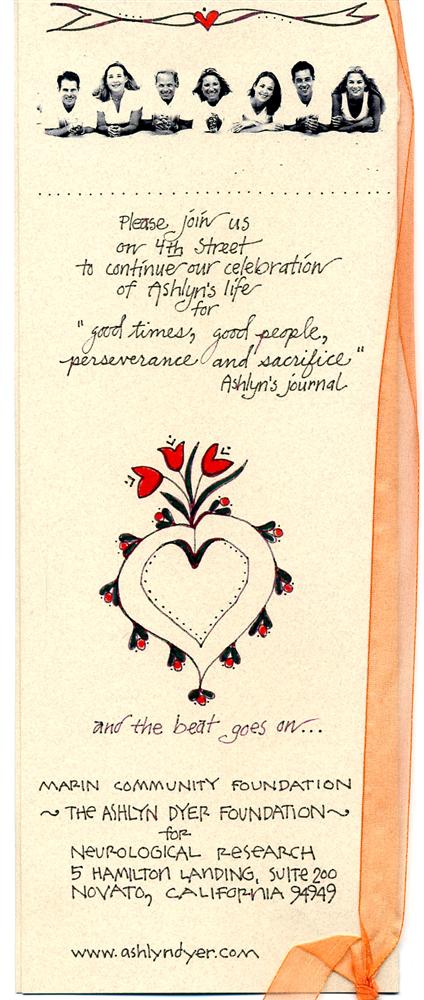 Please join us
on 4th Street
to continue our celebration
of Ashlyn's life
for
"good times, good people,
perseverance and sacrifice"
Ashlyn's journal
and the beat goes on...
MARIN COMMUNITY FOUNDATION
~ THE ASHLYN DYER FOUNDATION ~
for
NEUROLOGICAL RESEARCH
5 HAMILTON LANDING, SUITE 200
NOVATO, CALIFORNIA 94949
www.ashlyndyer.com